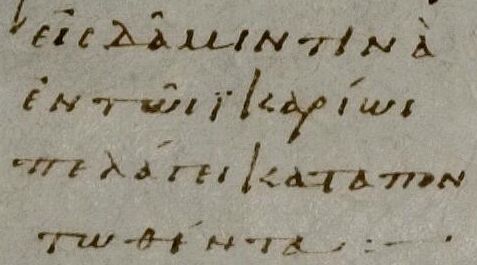 εἰς δᾶμιν τινὰ
ἐν τῶι ϊκαρίωι
πελάγει καταπον
τωθέντα :—